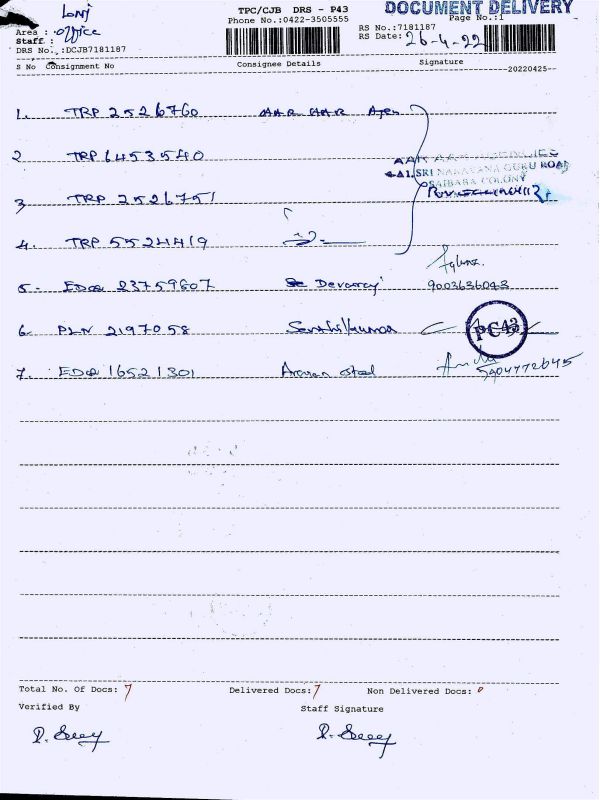 TPC/CJB DRS - P43 DOCUMENT DELIVERY
Phone No.:0422-3505555 Page No.:1
Area : office RS No.:7181187
Staff : RS Date: 26-4-22
DRS No.,:DCJB7181187
S No Consignment No Consignee Details Signature
20220425
1. TRP 2526760
2 TRP 6453540
SRI NARAYANA GURU ROAD
SAIBABA COLONY
3 TRP 2526751
4. TRP 5524419
5. EDQ 23759607 Devaraj 9003636043
6. PLN 2197058 Senthilkumar PC43
7. EDQ 16521301 steel 9404772645
Total No. Of Docs: 7 Delivered Docs: 7 Non Delivered Docs: 0
Verified By Staff Signature